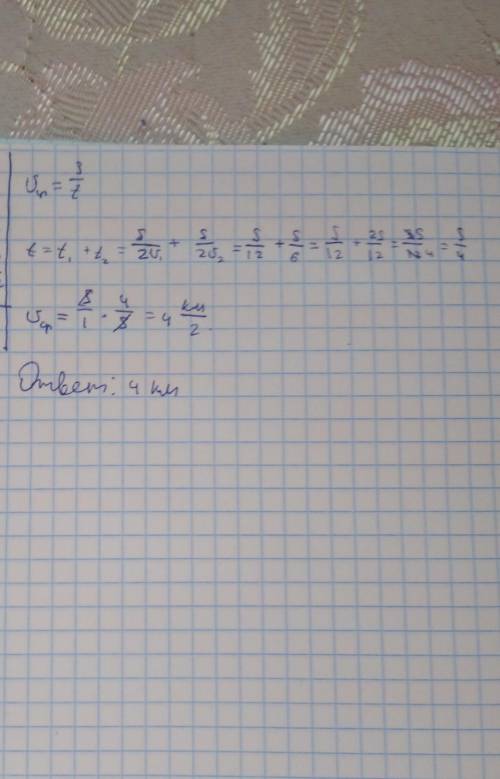 υср = S/t
t = t₁ + t₂ = S/2υ₁ + S/2υ₂ = S/12 + S/6 = S/12 + 2S/12 = 3S/12 4 = S/4
υср = S/1 · 4/S = 4 км/2.
Ответ: 4 км